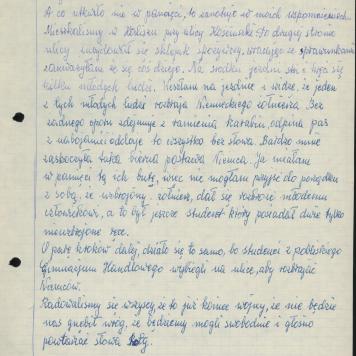 A co utkwiło mi w pamięci, to zanotuję w moich wspomnieniach.
Mieszkaliśmy w Kaliszu przy ulicy Kościuszki. Po drugiej stronie
ulicy znajdował się sklepik spożywczy, wracając ze sprawunkami
zauważyłam że się coś dzieje. Na środku jezdni stoi
kilku młodych ludzi. Weszłam na jezdnię i widzę, że jeden
z tych młodych ludzi rozbraja Niemieckiego żołnierza. Bez
żadnego oporu zdejmuje z ramienia karabin, odpina pas
z nabojami i oddaje to wszystko bez słowa. Bardzo mnie
zaskoczyła taka bierna postawa Niemca. Ja miałam
w pamięci tą ich butę, więc nie mogłam przyjść do porządku
z sobą, że uzbrojony żołnierz, dał się rozbroić młodemu
człowiekowi, a to był jeszcze student który posiadał dwie tylko
nieuzbrojone ręce.
O parę kroków dalej, działo się to samo, bo studenci z pobliskiego
Gimnazjum Handlowego wybiegli na ulicę, aby rozbrajać
Niemców.
Radowaliśmy się wszyscy, że to już koniec wojny, że nie będzie
nas gnębił wróg, że będziemy mogli swobodnie i głośno
powtarzać słowa